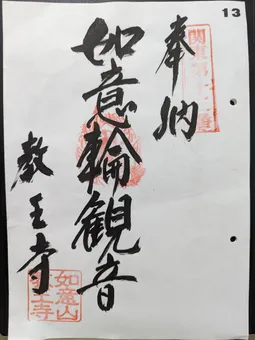 13
奉納
如意輪観音
教王寺
如意山
教王寺